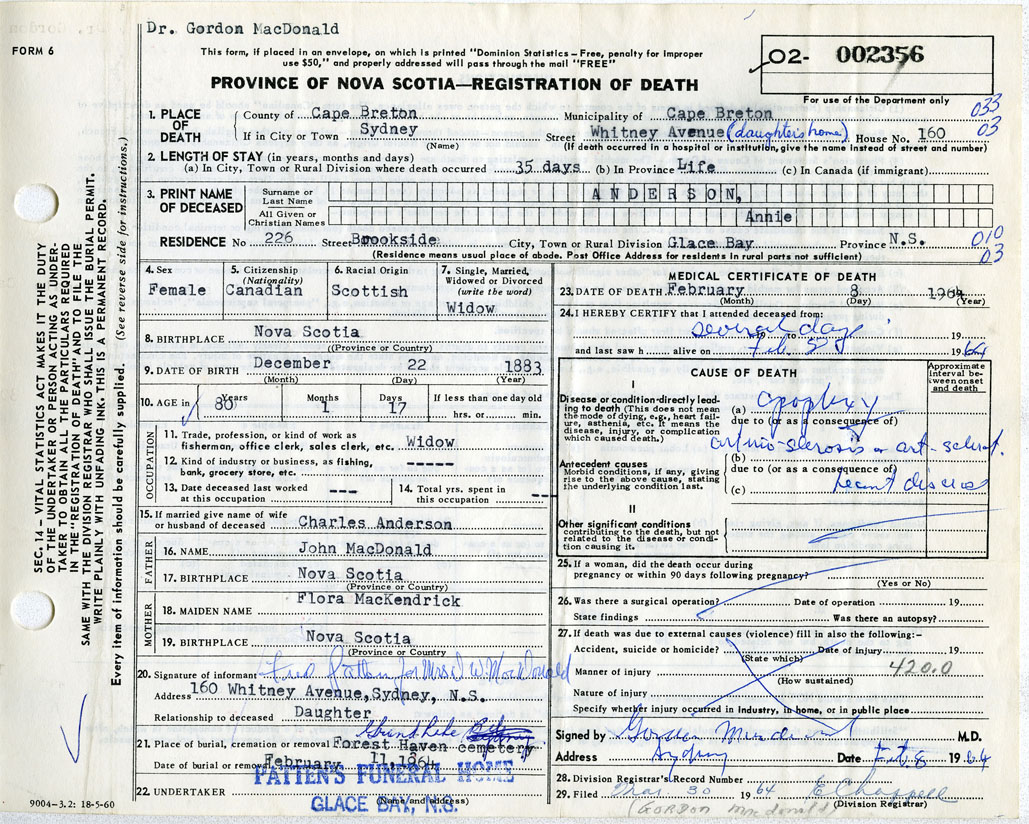 Dr. Gordon MacDonald
FORM 6
This form, if placed in an envelope, on which is printed "Dominion Statistics – Free, penalty for improper
use $50," and properly addressed will pass through the mail "FREE"
02- 002356
PROVINCE OF NOVA SCOTIA—REGISTRATION OF DEATH
For use of the Department only
033
03
1. PLACE OF DEATH
County of Cape Breton Municipality of Cape Breton
If in City or Town Sydney Street Whitney Avenue (daughter's home) House No. 160
(Name) (If death occurred in a hospital or institution, give the name instead of street and number)
2. LENGTH OF STAY (in years, months and days)
(a) In City, Town or Rural Division where death occurred 35 days (b) In Province Life (c) In Canada (if immigrant)
3. PRINT NAME OF DECEASED
Surname or Last Name ANDERSON,
All Given or Christian Names Annie
RESIDENCE No 226 Street Brookside City, Town or Rural Division Glace Bay Province N.S.
(Residence means usual place of abode. Post Office Address for residents in rural parts not sufficient)
010
03
4. Sex
Female
5. Citizenship
(Nationality)
Canadian
6. Racial Origin
Scottish
7. Single, Married,
Widowed or Divorced
(write the word)
Widow
8. BIRTHPLACE Nova Scotia
((Province or Country)
9. DATE OF BIRTH December 22 1883
(Month) (Day) (Year)
10. AGE in 80 Years Months 1 Days 17 If less than one day old
hrs. or min.
OCCUPATION
11. Trade, profession, or kind of work as
fisherman, office clerk, sales clerk, etc. Widow
12. Kind of industry or business, as fishing,
bank, grocery store, etc. -----
13. Date deceased last worked
at this occupation ---
14. Total yrs. spent in
this occupation ---
15. If married give name of wife
or husband of deceased Charles Anderson
FATHER
16. NAME John MacDonald
17. BIRTHPLACE Nova Scotia
(Province or Country)
MOTHER
18. MAIDEN NAME Flora MacKendrick
19. BIRTHPLACE Nova Scotia
(Province or Country
20. Signature of informant Fred Patten for Mrs D. W. MacDonald
Address 160 Whitney Avenue, Sydney, N.S.
Relationship to deceased Daughter
21. Place of burial, cremation or removal Forest Haven cemetery
Date of burial or removal February 11, 1864
22. UNDERTAKER PATTEN'S FUNERAL HOME
GLACE BAY, N.S.
(Name and address)
MEDICAL CERTIFICATE OF DEATH
23. DATE OF DEATH February 8 1964
(Month) (Day) (Year)
24. I HEREBY CERTIFY that I attended deceased from:
several days 19 to 19
and last saw h alive on Feb. 19 64
CAUSE OF DEATH
Approximate
interval be-
tween onset
and death
I
Disease or condition directly lead-
ing to death (This does not mean
the mode of dying, e.g., heart fail-
ure, asthenia, etc. It means the
disease, injury, or complication
which caused death.)
(a) apoplexy
due to (or as a consequence of)
arterio-sclerosis
(b)
due to (or as a consequence of)
(c) heart disease
Antecedent causes
Morbid conditions, if any, giving
rise to the above cause, stating
the underlying condition last.
II
Other significant conditions
contributing to the death, but not
related to the disease or condi-
tion causing it.
25. If a woman, did the death occur during
pregnancy or within 90 days following pregnancy?
(Yes or No)
26. Was there a surgical operation? Date of operation 19
State findings Was there an autopsy?
27. If death was due to external causes (violence) fill in also the following:-
Accident, suicide or homicide? Date of injury 19
(State which)
Manner of injury 420.0
(How sustained)
Nature of injury
Specify whether injury occurred in industry, in home, or in public place
Signed by M.D.
Address Sydney Date Feb 8 1964
28. Division Registrar's Record Number
29. Filed Mar. 30 1964 E Chappell
(GORDON Mac donald) (Division Registrar)
SEC. 14 – VITAL STATISTICS ACT MAKES IT THE DUTY
OF THE UNDERTAKER OR PERSON ACTING AS UNDER-
TAKER TO OBTAIN ALL THE PARTICULARS REQUIRED
IN THE "REGISTRATION OF DEATH" AND TO FILE THE
SAME WITH THE DIVISION REGISTRAR WHO SHALL ISSUE THE BURIAL PERMIT.
WRITE PLAINLY WITH UNFADING INK. THIS IS A PERMANENT RECORD.
Every item of information should be carefully supplied. (See reverse side for instructions.)
9004-3.2: 18-5-60